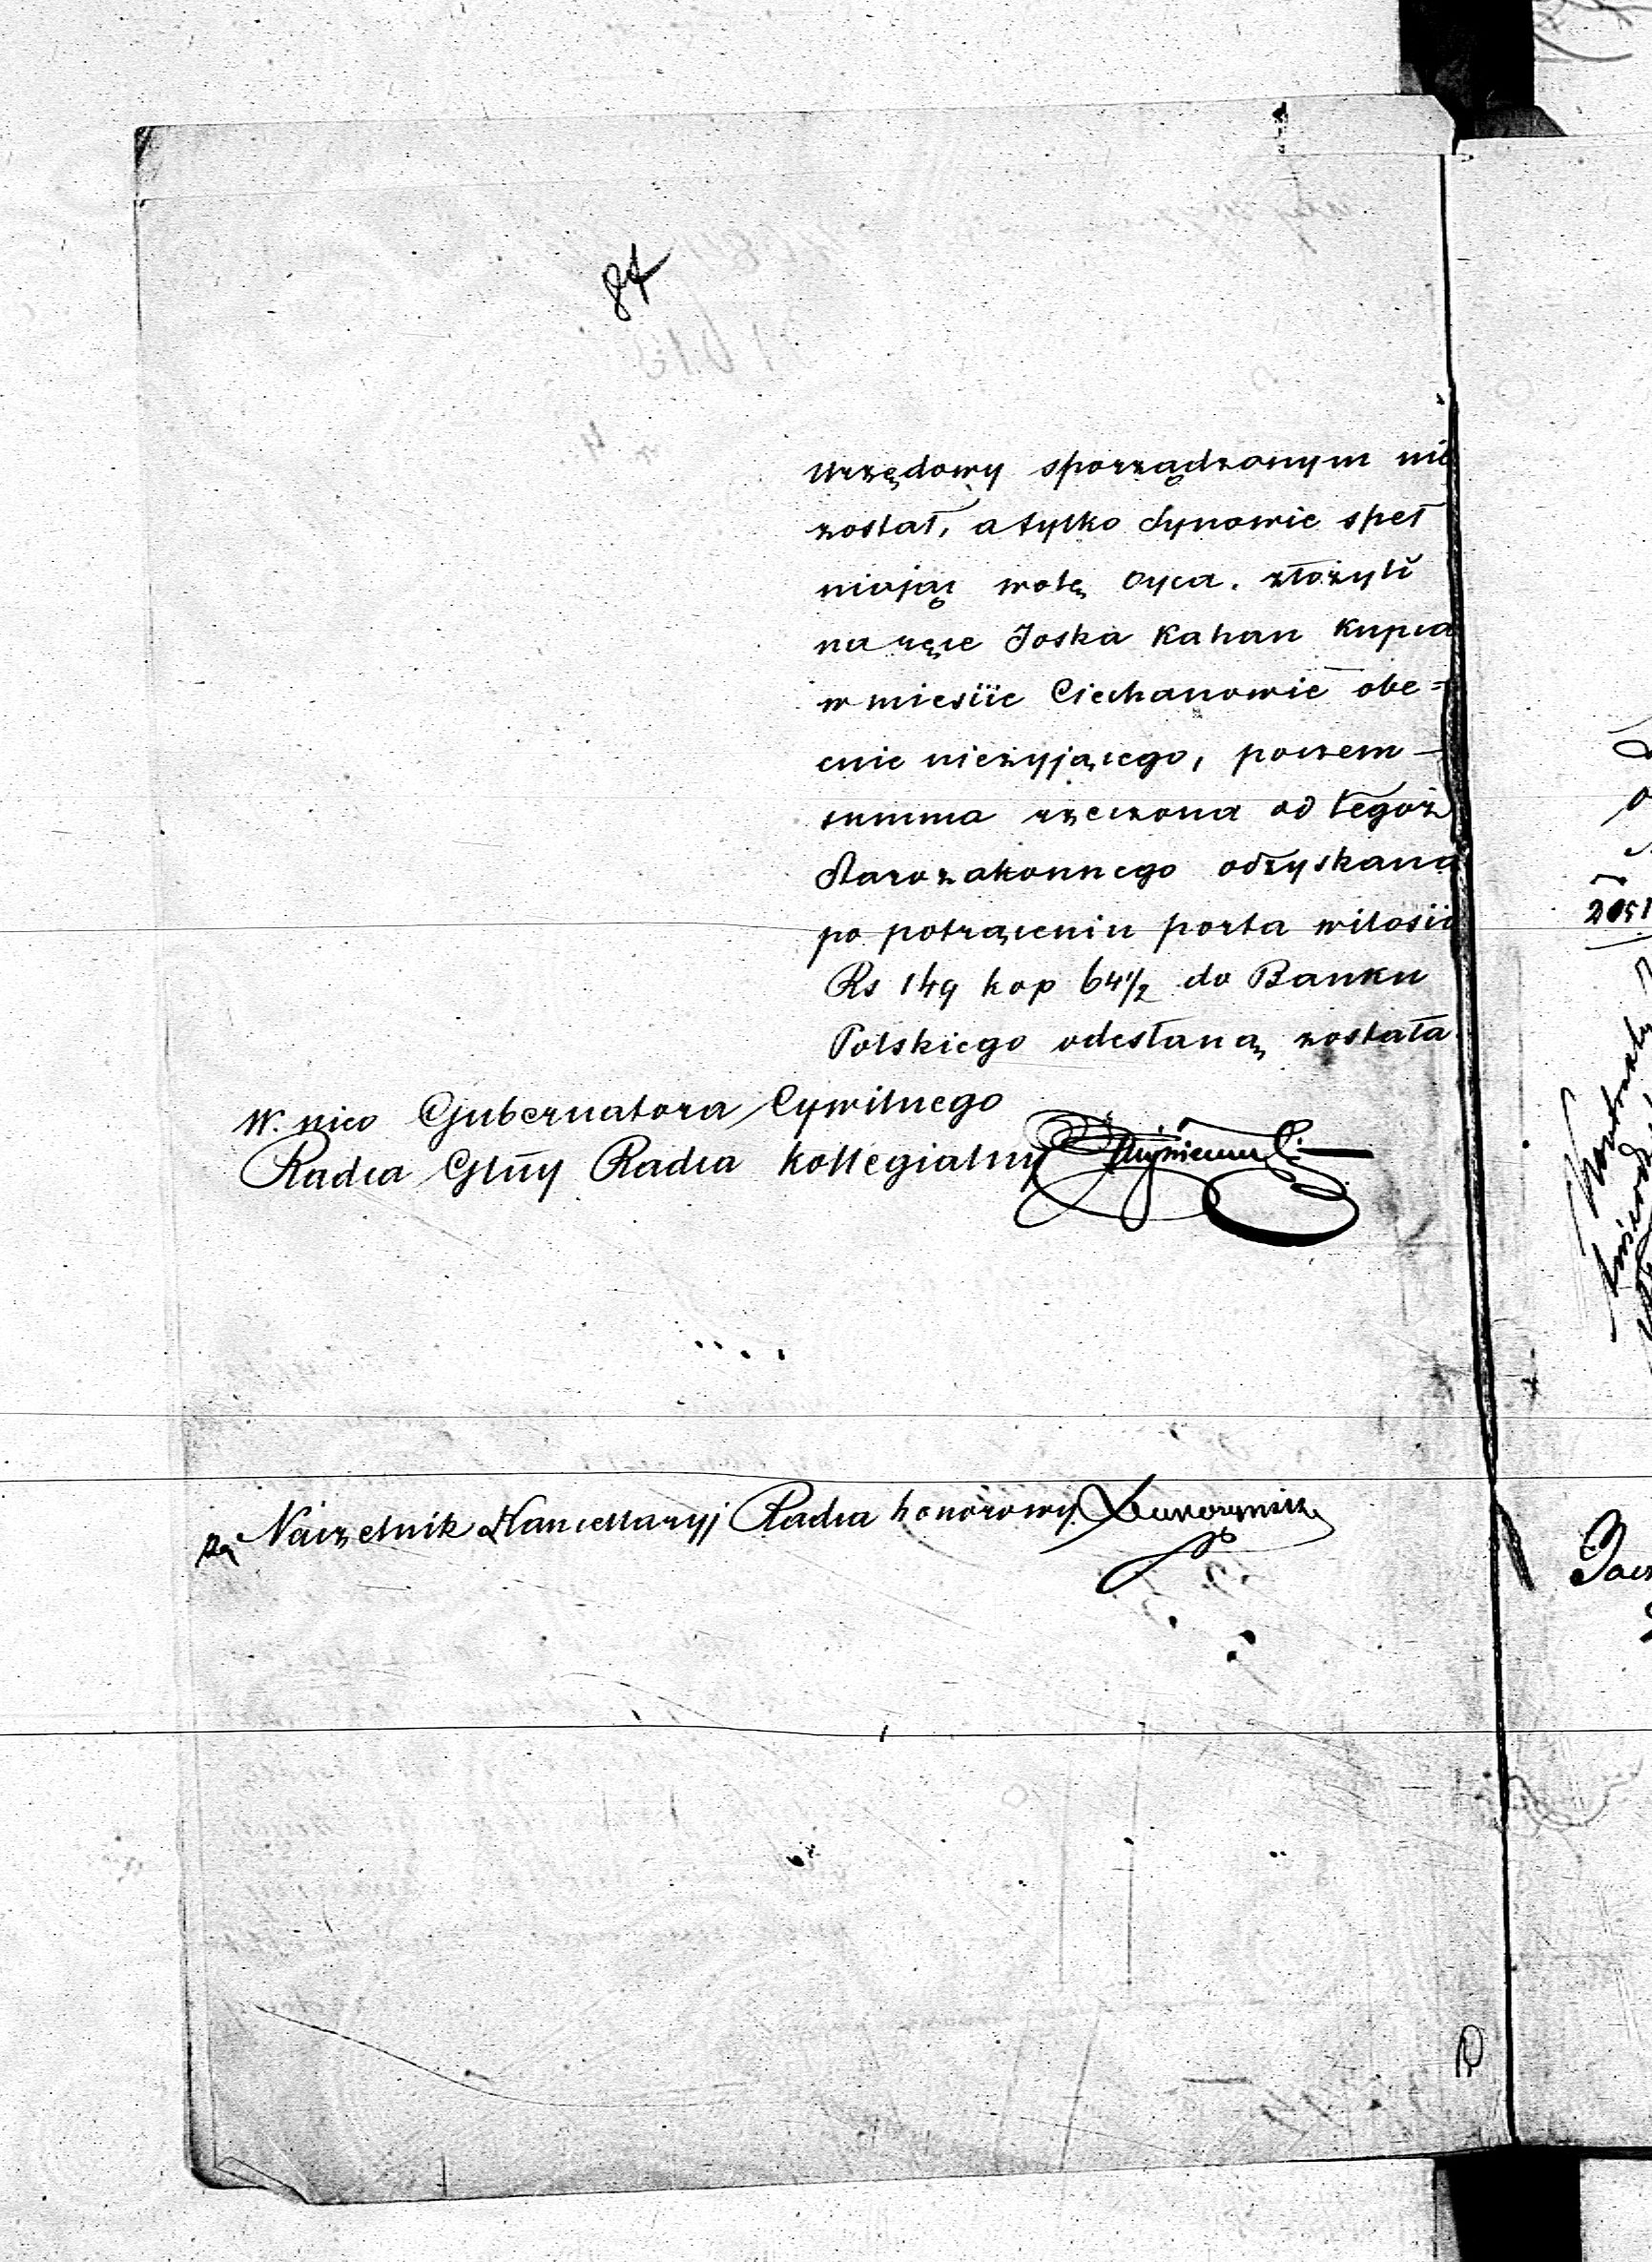 84
urzędowy sporządzonym nie
został, a tylko Synowie speł
niając wolę Oyca. złożyli
na ręce Joska Kahan Kupca
w mieście Ciechanowie obe=
cnie nieżyjącego, poczem
summa rzeczona od tegoż
Starozakonnego odzyskaną
po potrąceniu porta wilości
Rs 149 kop 64½ do Banku
Polskiego odesłaną została
W. nieo Gubernatora Cywilnego
Radca Głny Radca Kollegialny
za Naczelnik Kancellaryj Radca honorowy